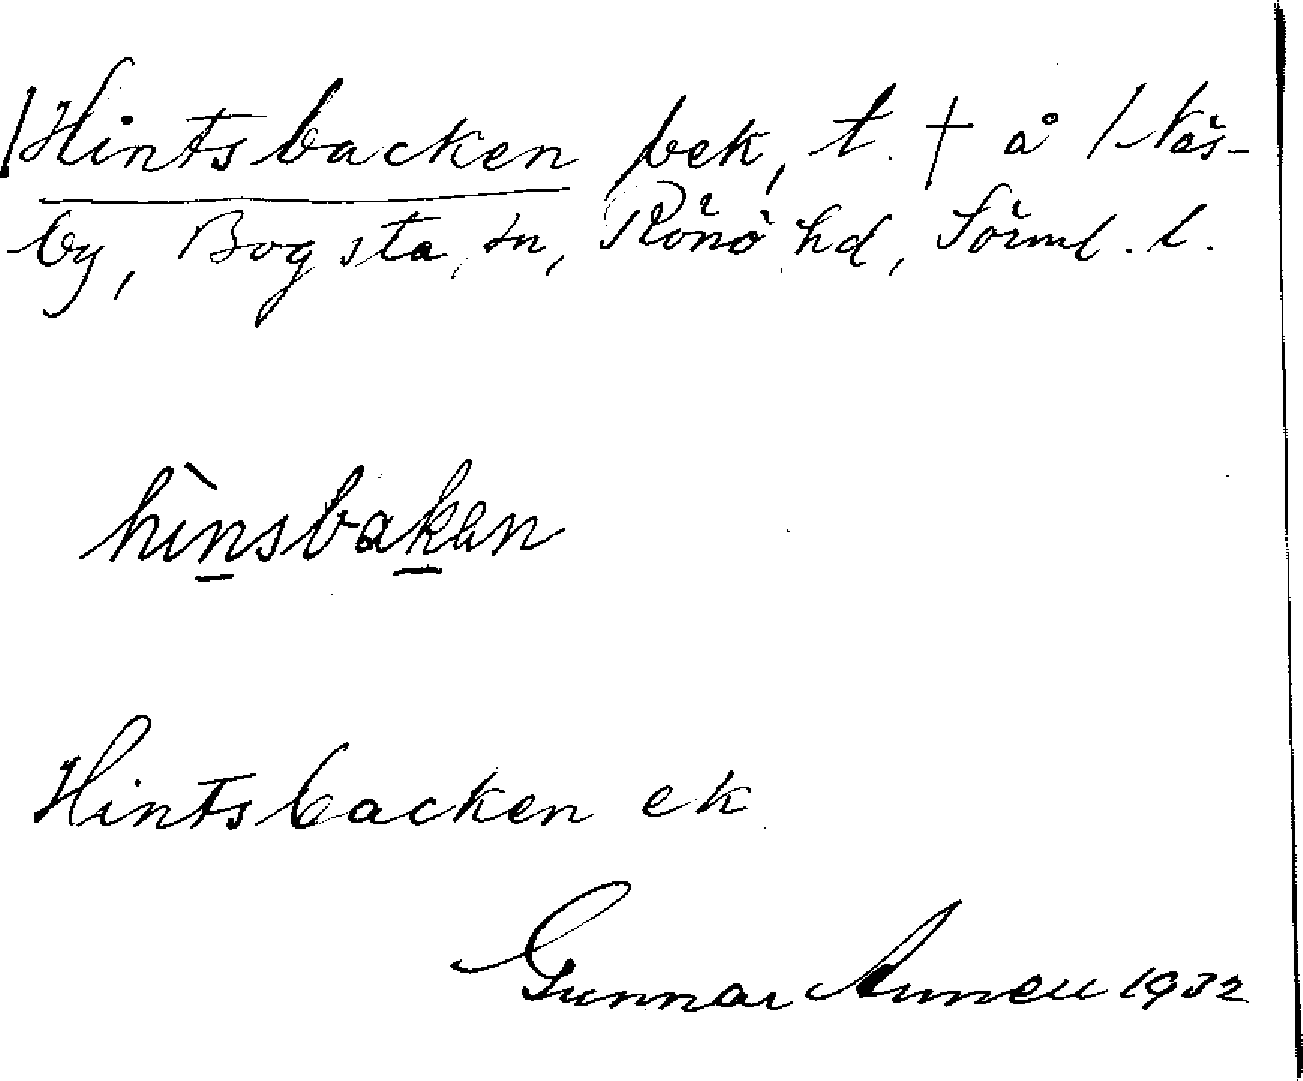 Hintsbacken bek, t. † å Näs-
by, Bogsta sn, Rönö hd, Sörml. l.
hìnsbaken
Hintsbacken ek
Gunnar 1932